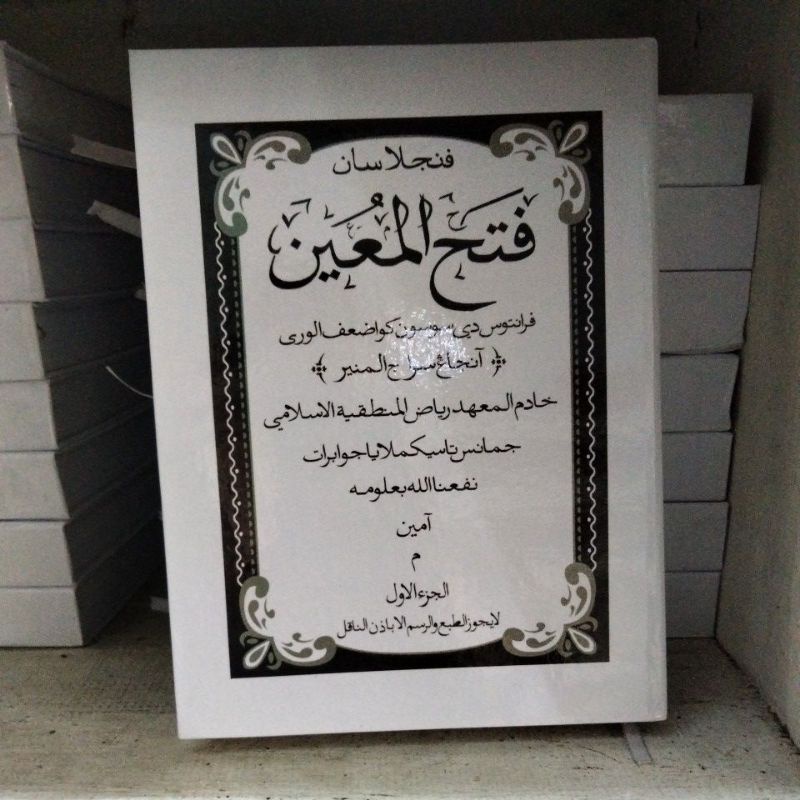 فنجلاسان
فَتَحُ الْمُعِيْن
فرانتوس دي سوسون كو اضعف الورى
﴿ آنجاڠ سراج المنير ﴾
خادم المعهد رياض المنطقية الاسلامي
جمانس تاسيكملايا جوابرات
نفعنا الله بعلومه
آمين
م
الجزء الاول
لايجوز الطبع والرسم الا باذن الناقل